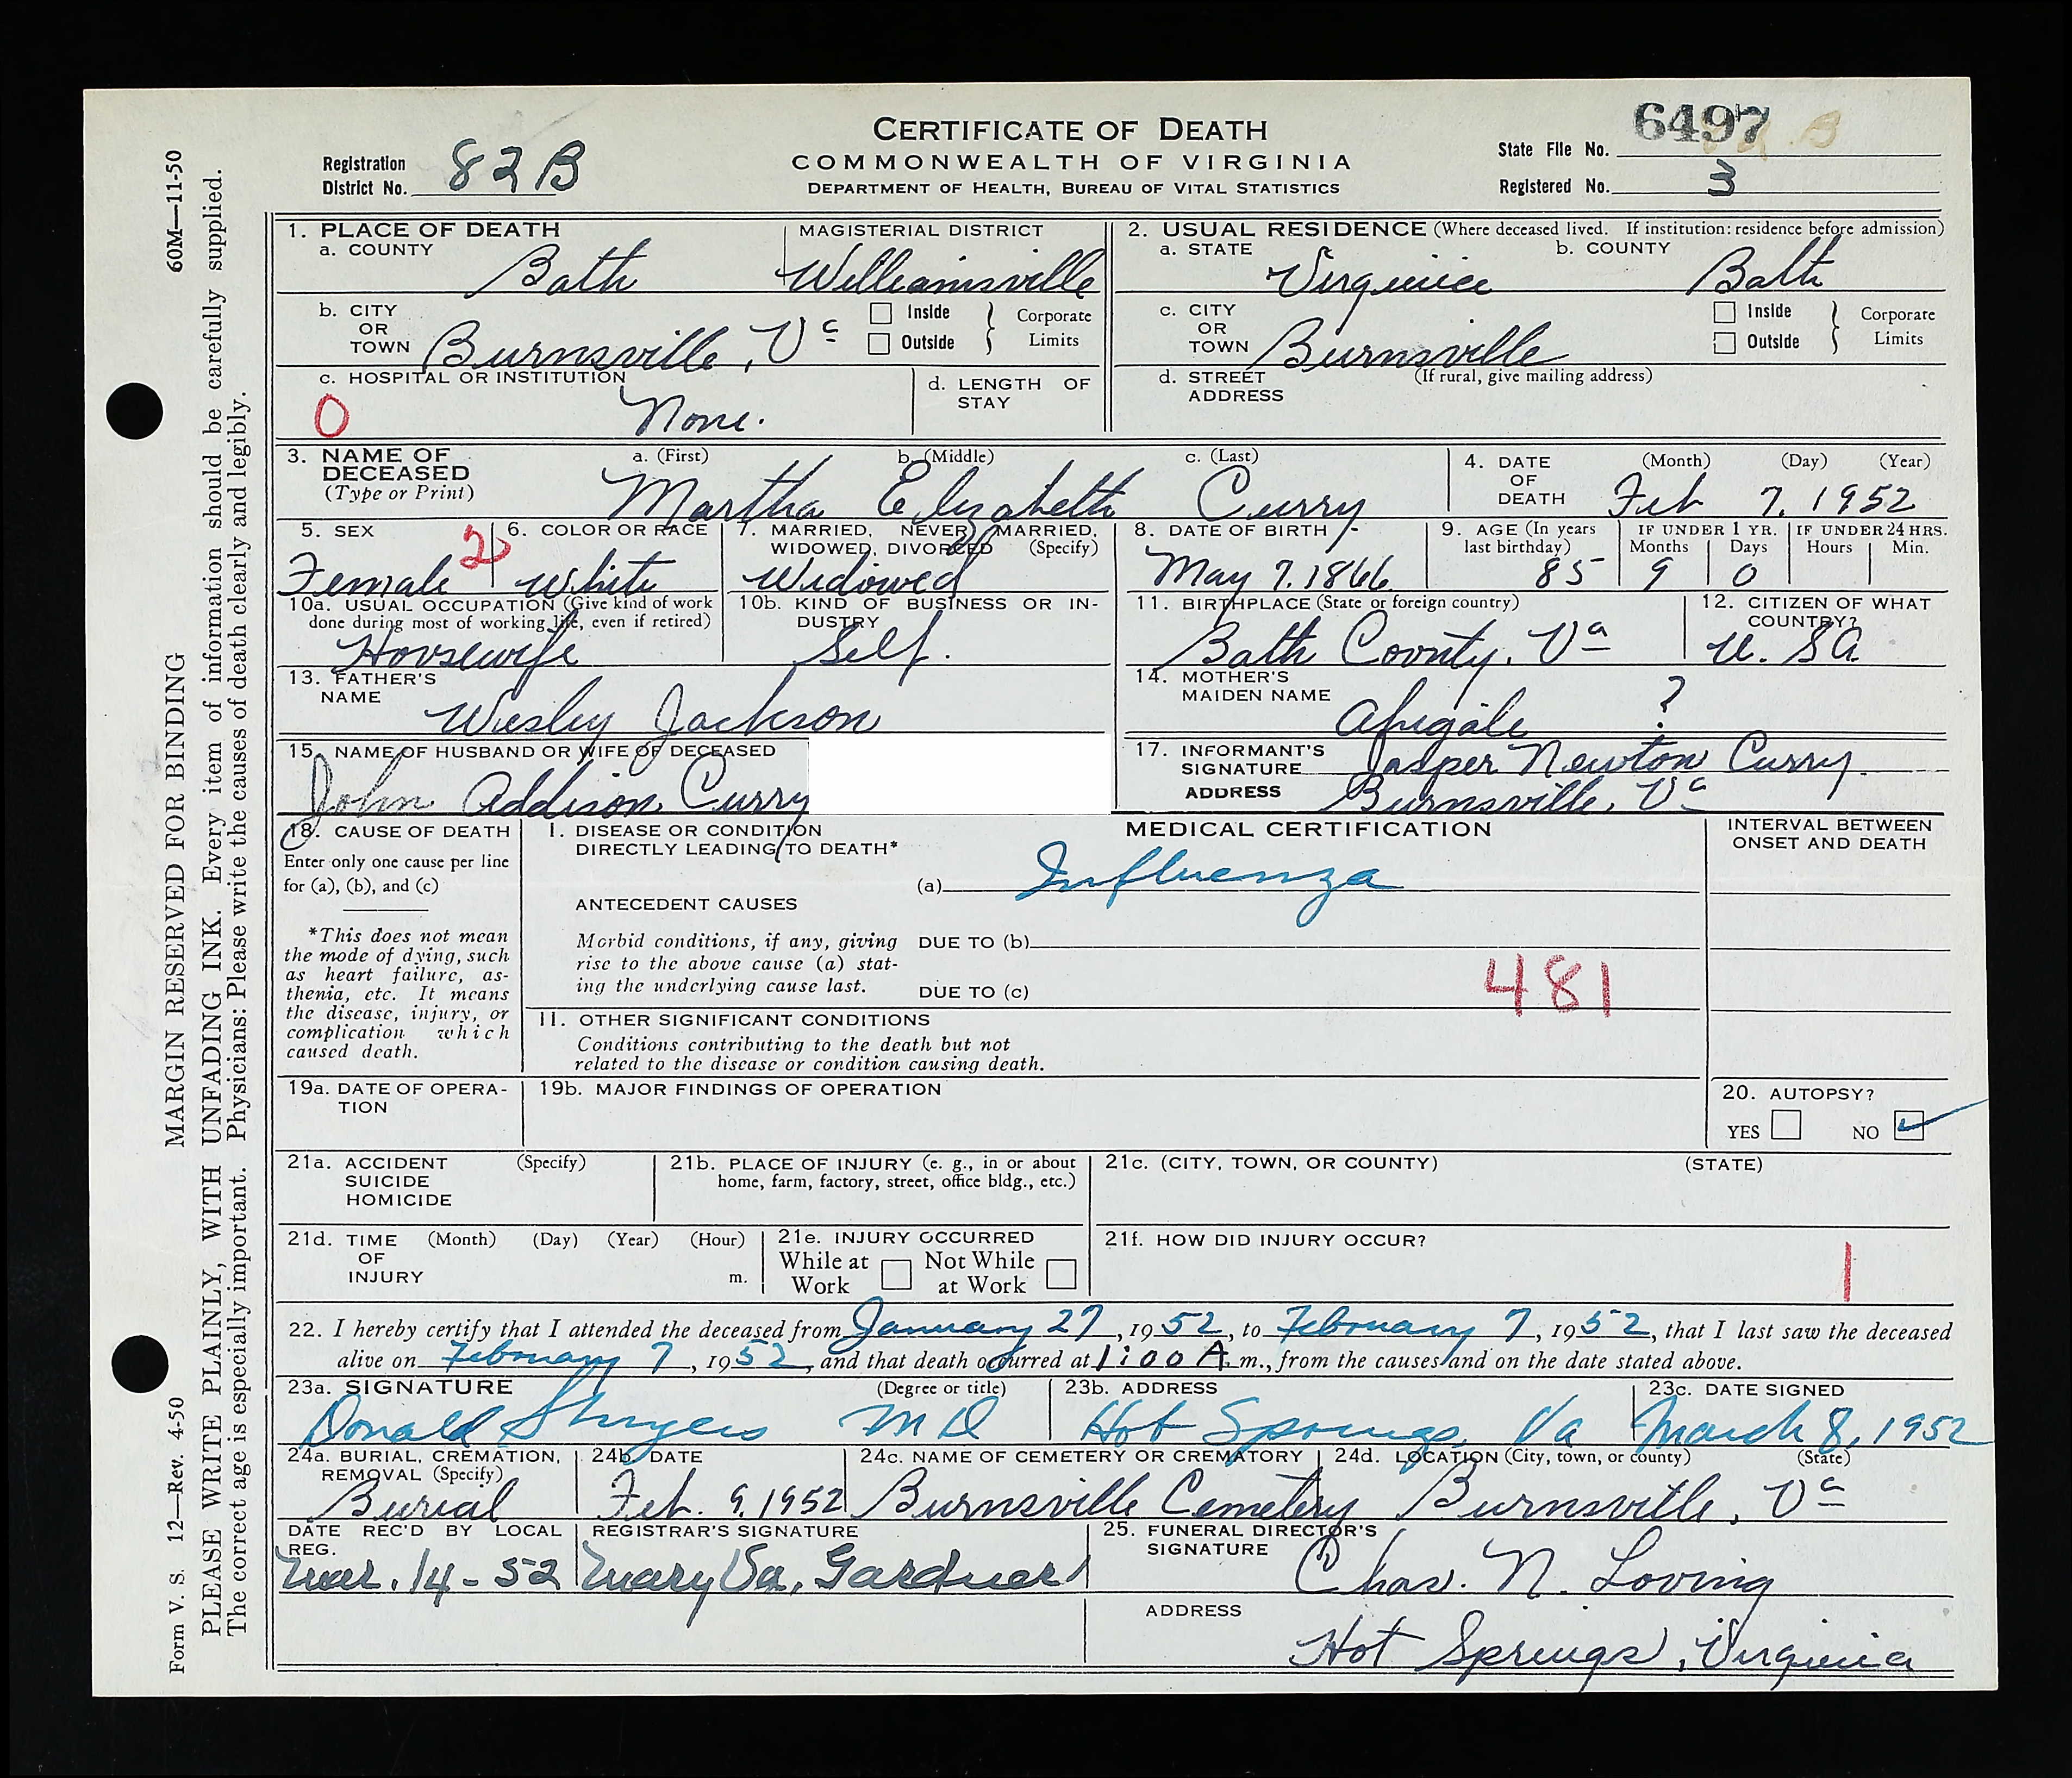 CERTIFICATE OF DEATH
COMMONWEALTH OF VIRGINIA
DEPARTMENT OF HEALTH, BUREAU OF VITAL STATISTICS
Registration District No. 82B
State File No. 6497
Registered No. 3
1. PLACE OF DEATH
a. COUNTY Bath
MAGISTERIAL DISTRICT Williamsville
b. CITY OR TOWN Burnsville, Va
Inside
Outside
Corporate Limits
c. HOSPITAL OR INSTITUTION None.
0
d. LENGTH OF STAY
2. USUAL RESIDENCE (Where deceased lived. If institution: residence before admission)
a. STATE Virginia
b. COUNTY Bath
c. CITY OR TOWN Burnsville
Inside
Outside
Corporate Limits
d. STREET ADDRESS (If rural, give mailing address)
3. NAME OF DECEASED (Type or Print)
a. (First) Martha
b. (Middle) Elizabeth
c. (Last) Curry
4. DATE OF DEATH (Month) (Day) (Year) Feb 7, 1952
5. SEX Female
2
6. COLOR OR RACE White
7. MARRIED, NEVER MARRIED, WIDOWED, DIVORCED (Specify) Widowed
8. DATE OF BIRTH May 7, 1866
9. AGE (In years last birthday) 85
IF UNDER 1 YR. Months 9 Days 0
IF UNDER 24 HRS. Hours Min.
10a. USUAL OCCUPATION (Give kind of work done during most of working life, even if retired) Housewife
10b. KIND OF BUSINESS OR INDUSTRY Self.
11. BIRTHPLACE (State or foreign country) Bath County, Va
12. CITIZEN OF WHAT COUNTRY? U. SA
13. FATHER'S NAME Wesley Jackson
14. MOTHER'S MAIDEN NAME Abigale ?
15. NAME OF HUSBAND OR WIFE OF DECEASED John Addison Curry
17. INFORMANT'S SIGNATURE Jasper Newton Curry
ADDRESS Burnsville, Va
18. CAUSE OF DEATH
Enter only one cause per line for (a), (b), and (c)
*This does not mean the mode of dying, such as heart failure, asthenia, etc. It means the disease, injury, or complication which caused death.
MEDICAL CERTIFICATION
INTERVAL BETWEEN ONSET AND DEATH
I. DISEASE OR CONDITION DIRECTLY LEADING TO DEATH*
(a) Influenza
ANTECEDENT CAUSES
Morbid conditions, if any, giving rise to the above cause (a) stating the underlying cause last.
DUE TO (b)
DUE TO (c)
481
II. OTHER SIGNIFICANT CONDITIONS
Conditions contributing to the death but not related to the disease or condition causing death.
19a. DATE OF OPERATION
19b. MAJOR FINDINGS OF OPERATION
20. AUTOPSY?
YES NO
21a. ACCIDENT SUICIDE HOMICIDE (Specify)
21b. PLACE OF INJURY (e. g., in or about home, farm, factory, street, office bldg., etc.)
21c. (CITY, TOWN, OR COUNTY) (STATE)
21d. TIME OF INJURY (Month) (Day) (Year) (Hour) m.
21e. INJURY OCCURRED
While at Work Not While at Work
21f. HOW DID INJURY OCCUR?
1
22. I hereby certify that I attended the deceased from January 27, 1952, to February 7, 1952, that I last saw the deceased
alive on February 7, 1952, and that death occurred at 1:00 A. m., from the causes and on the date stated above.
23a. SIGNATURE (Degree or title) Donald MD
23b. ADDRESS Hot Springs, Va
23c. DATE SIGNED March 8, 1952
24a. BURIAL, CREMATION, REMOVAL (Specify) Burial
24b. DATE Feb. 9, 1952
24c. NAME OF CEMETERY OR CREMATORY Burnsville Cemetery
24d. LOCATION (City, town, or county) (State) Burnsville, Va
DATE REC'D BY LOCAL REG. Mar. 14-52
REGISTRAR'S SIGNATURE Mary Va. Gardner
25. FUNERAL DIRECTOR'S SIGNATURE Chas. N. Loving
ADDRESS Hot Springs, Virginia
60M—11-50
MARGIN RESERVED FOR BINDING
Form V. S. 12—Rev. 4-50
PLEASE WRITE PLAINLY, WITH UNFADING INK. Every item of information should be carefully supplied.
The correct age is especially important. Physicians: Please write the causes of death clearly and legibly.